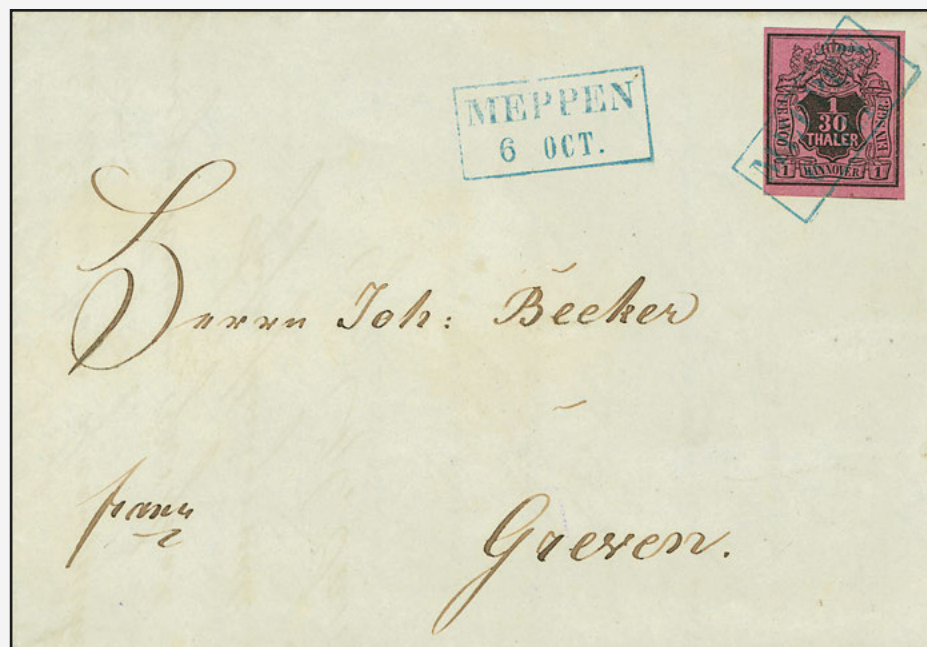 MEPPEN
6 OCT.
FRANCO
1
30
THALER
1 HANNOVER 1
Herrn Joh: Becker
franco
Greven.